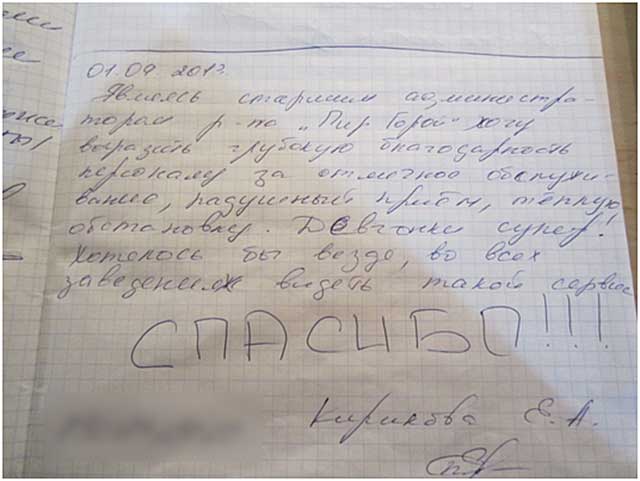 01.09.2013г.
Являясь старшим администра-
тором р-на „Пир Горой" хочу
выразить глубокую благодарность
персоналу за отличное обслужи-
вание, радушный приём, тёплую
обстановку. Девчонки супер!
Хотелось бы везде, во всех
заведениях видеть такой сервис
СПАСИБО!!!
Кирикова Е. А.